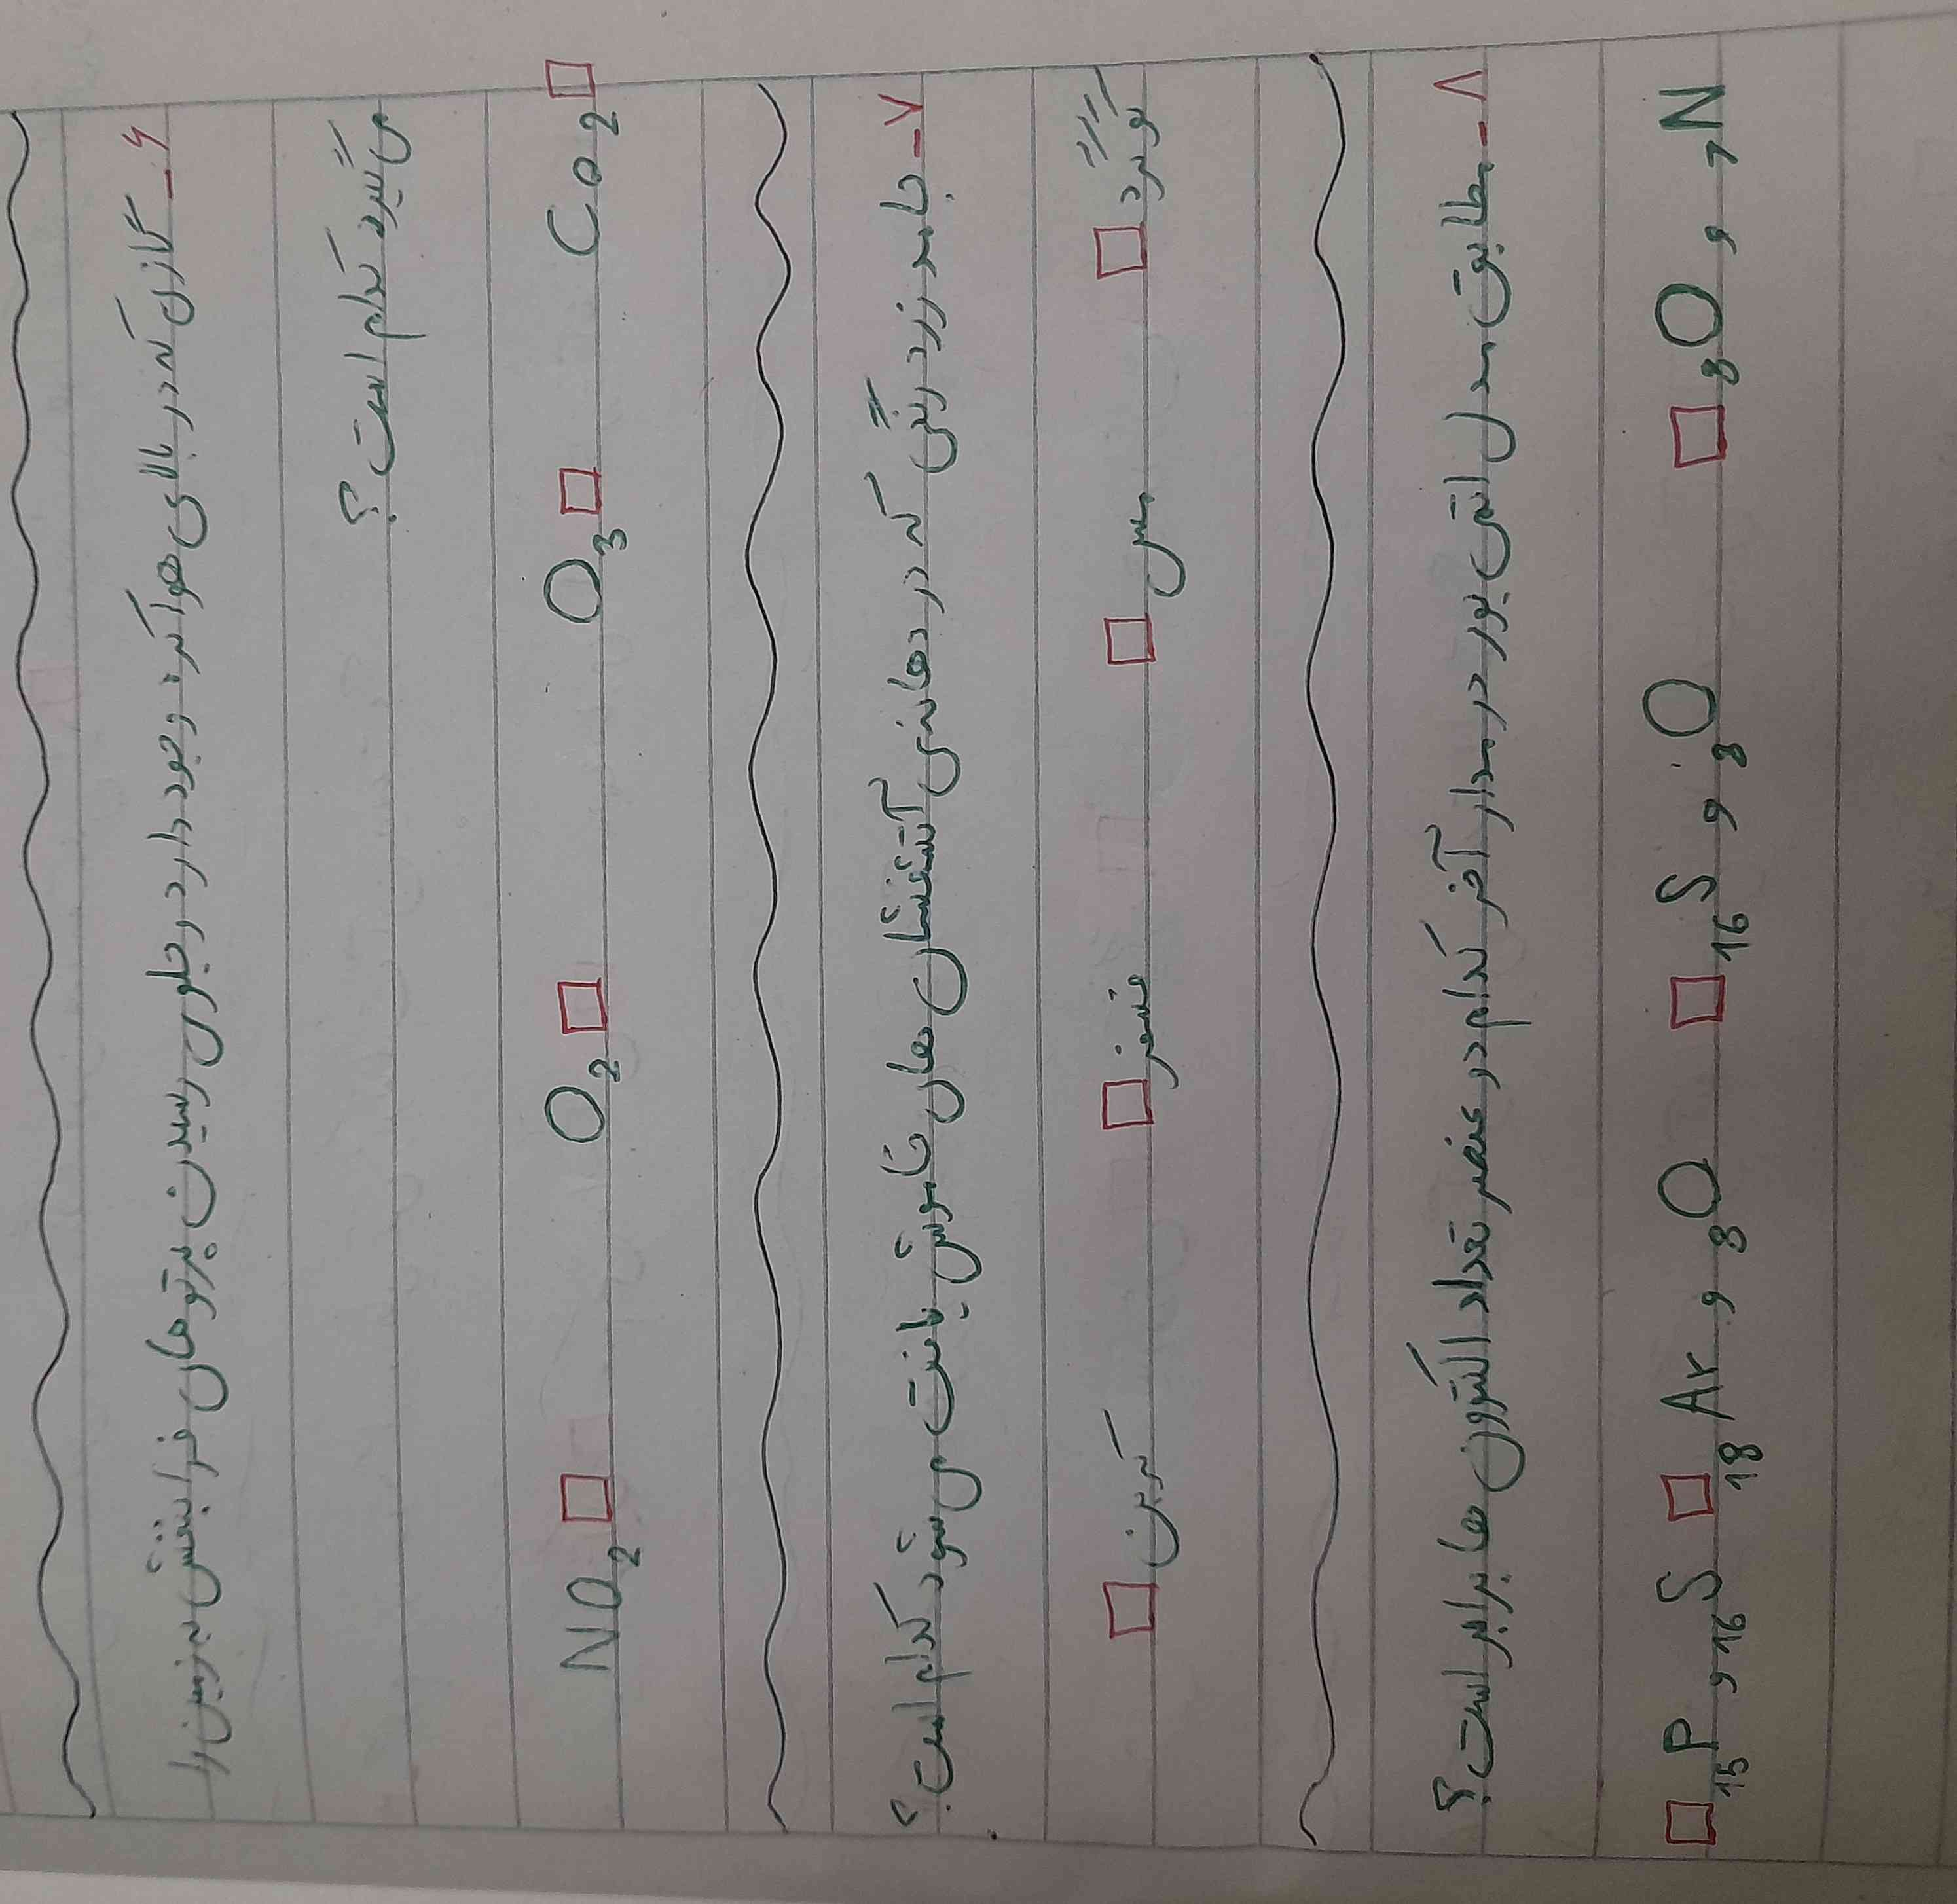 ۶- گازی که در بالای هوا کره وجود دارد و جلوی رسیدن پرتو های فرا بنفش به زمین را
می گیرد کدام است؟
Co2 □ O3 □ O2 □ NO2 □
۷- جامد زرد رنگی که در دهانه‌ی آتشفشان های خاموش یافت می شود کدام است؟
گوگرد □ مس □ فسفر □ کربن □
۸- مطابق مدل اتمی بور در مدار آخر کدام دو عنصر تعداد الکترون ها برابر است؟
7N , 8O □ 8O , 16S □ 8O , 18Ar □ 16S , 15P □